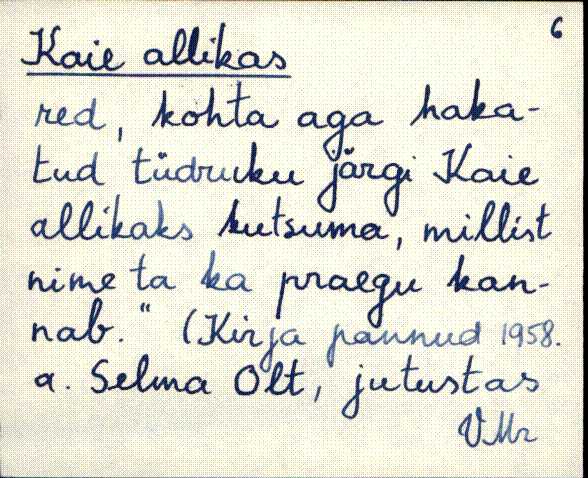 6
Kaie allikas
red, kohta aga haka-
tud tüdruku järgi Kaie
allikaks kutsuma, millist
nime ta ka praegu kan-
nab." (Kirja pannud 1958.
a. Selma Olt, jutustas
VMr